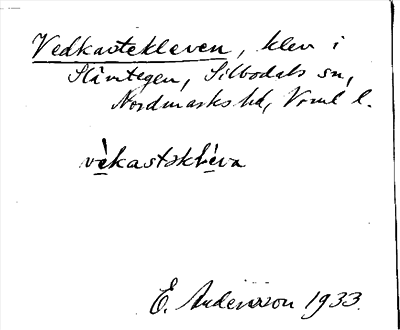 Vedkastekleven, klev i
Slävtegen, Silbodals sn,
Nordmarks hd, Vrml l.
vèkastəkle̱va
E. Andersson 1933.